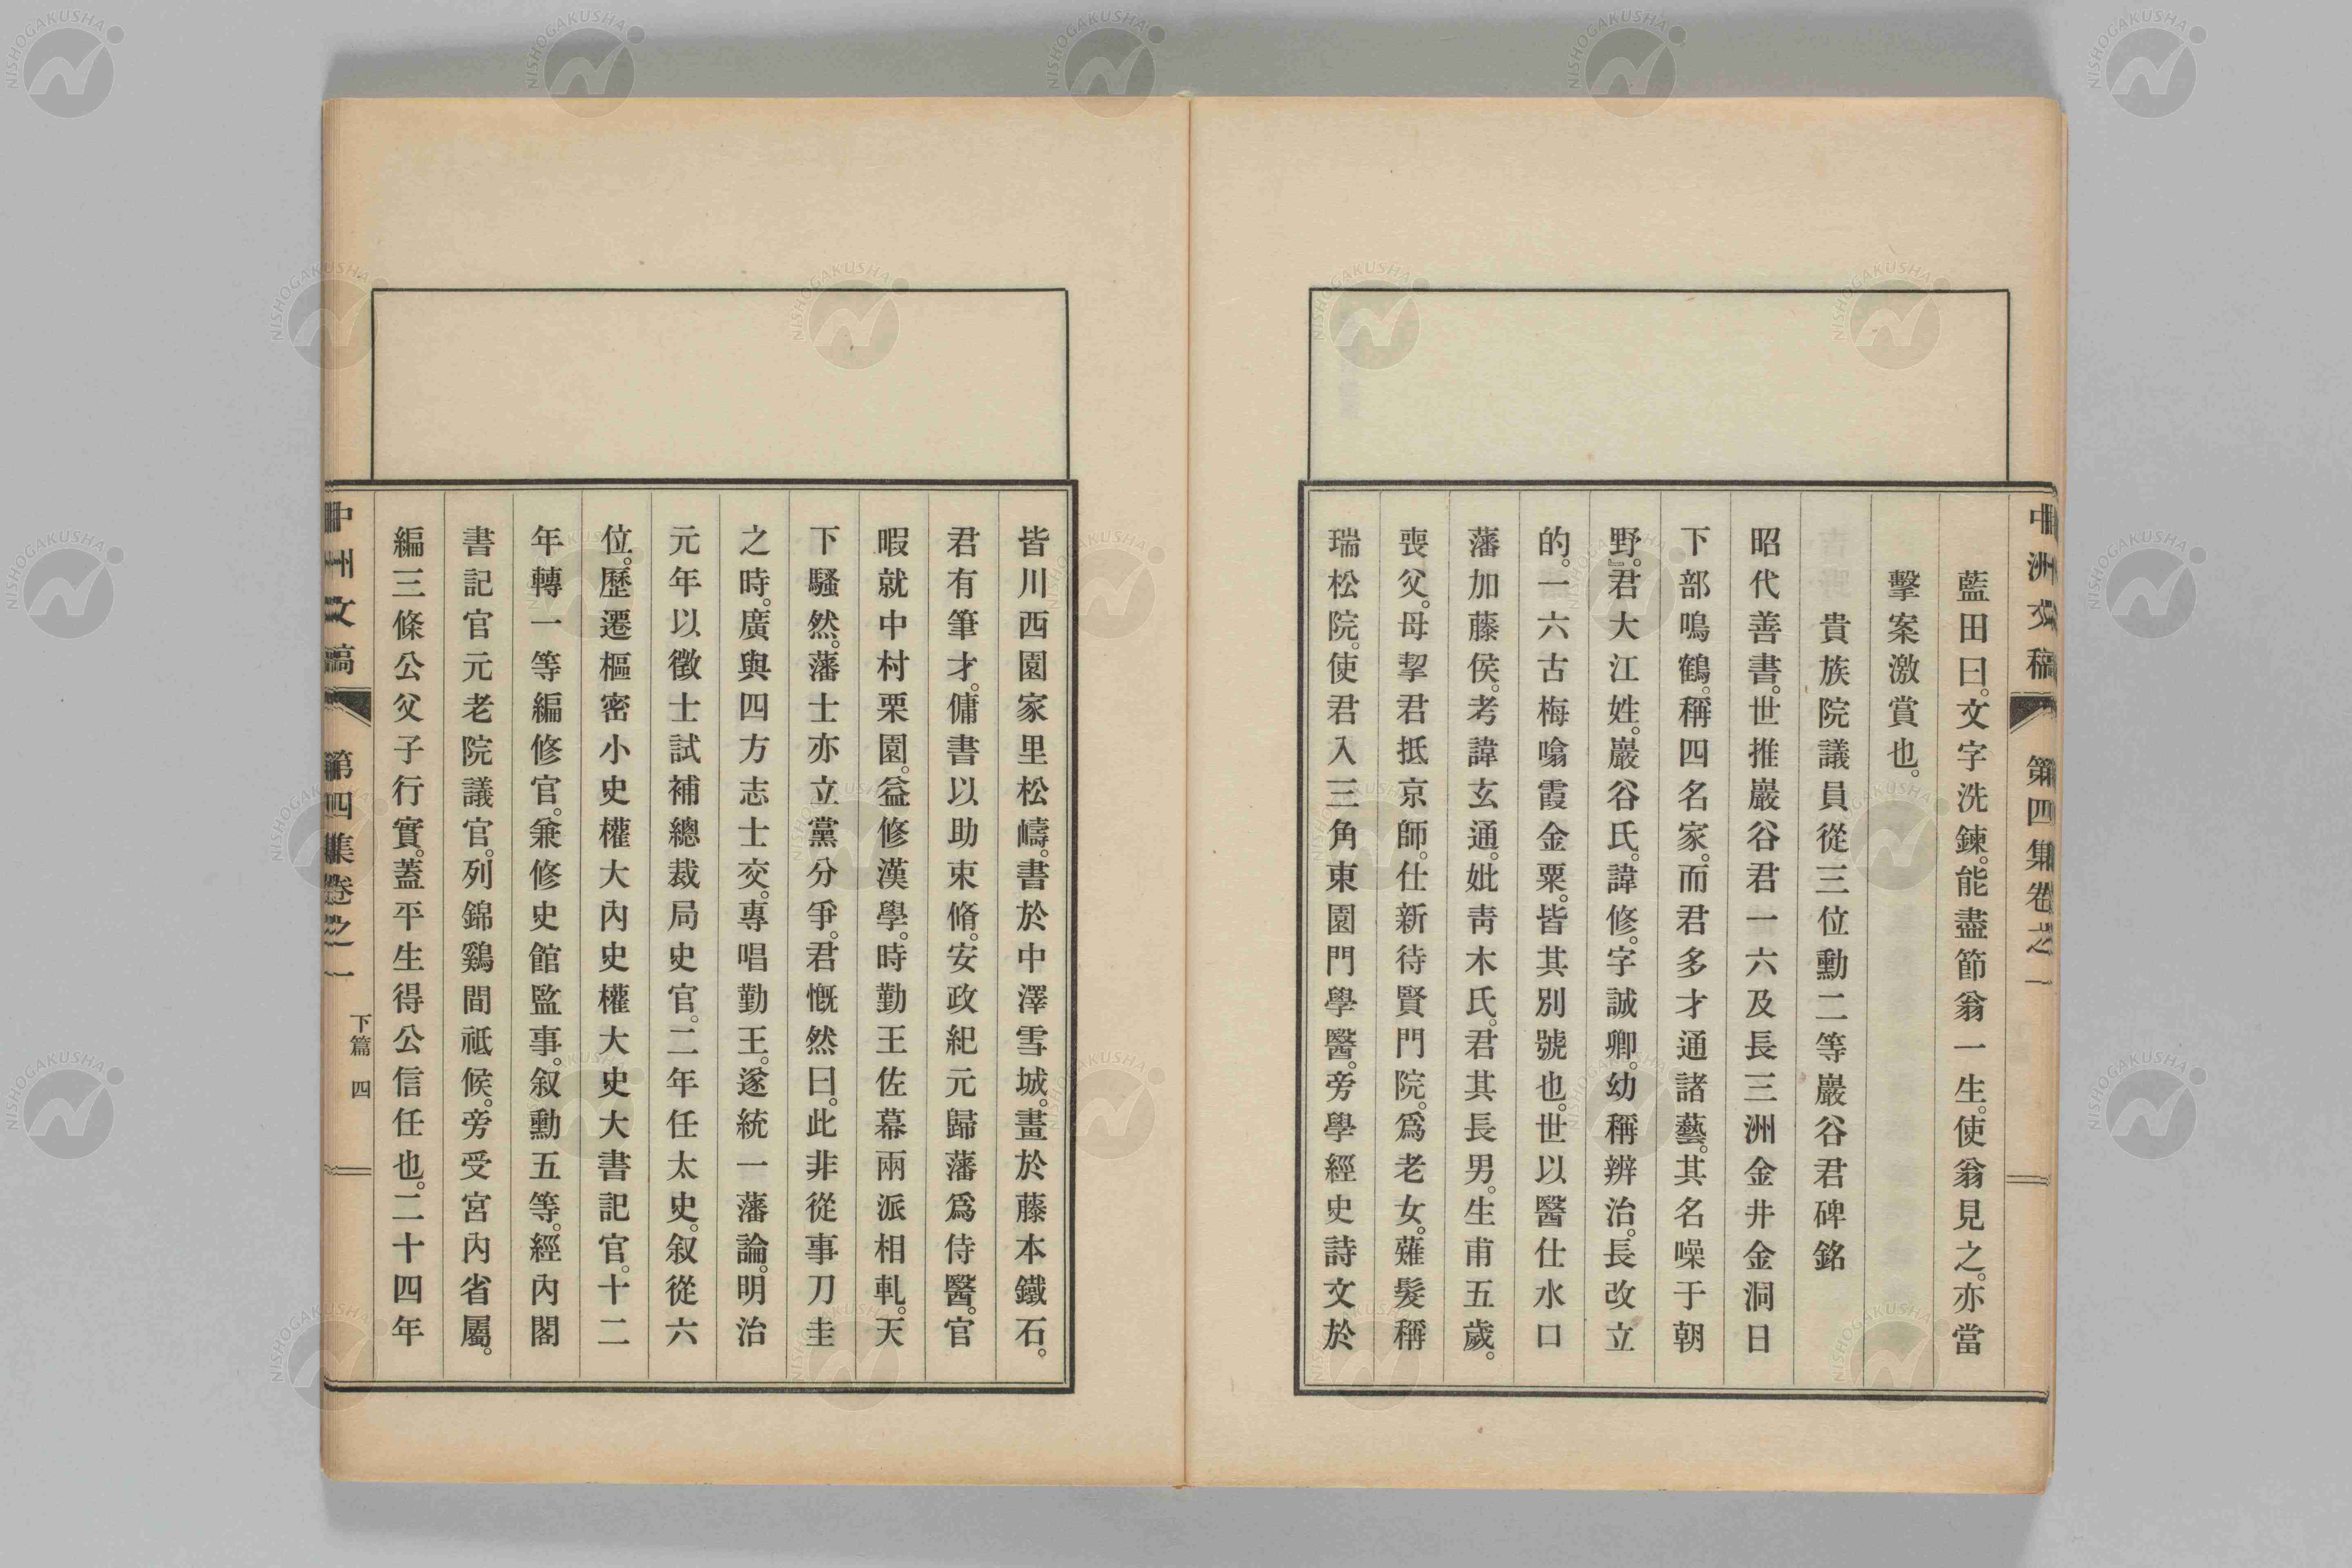 中洲文稿 第四集卷之一
藍田曰。文字洗鍊。能盡節翁一生。使翁見之。亦當
擊案激賞也。
貴族院議員從三位勳二等巖谷君碑銘
昭代善書。世推巖谷君一六及長三洲金井金洞日
下部鳴鶴。稱四名家。而君多才通諸藝。其名噪于朝
野。君大江姓。巖谷氏。諱修。字誠卿。幼稱辨治。長改立
的。一六古梅噏霞金粟。皆其別號也。世以醫仕水口
藩加藤侯。考諱玄通。妣靑木氏。君其長男。生甫五歲。
喪父。母挈君抵京師。仕新待賢門院。爲老女。薙髮稱
瑞松院。使君入三角東園門學醫。旁學經史詩文於
皆川西園家里松嶹。書於中澤雪城。畫於藤本鐵石。
君有筆才。傭書以助束脩。安政紀元歸藩爲侍醫。官
暇就中村栗園。益修漢學。時勤王佐幕兩派相軋。天
下騷然。藩士亦立黨分爭。君慨然曰。此非從事刀圭
之時。廣與四方志士交。專唱勤王。遂統一藩論。明治
元年以徵士試補總裁局史官。二年任太史。叙從六
位。歷遷樞密小史權大內史權大史大書記官。十二
年轉一等編修官。兼修史館監事。叙勳五等。經內閣
書記官元老院議官。列錦鷄間祗候。旁受宮內省屬。
編三條公父子行實。蓋平生得公信任也。二十四年
中洲文稿 第四集卷之一 下篇 四
NISHOGAKUSHA